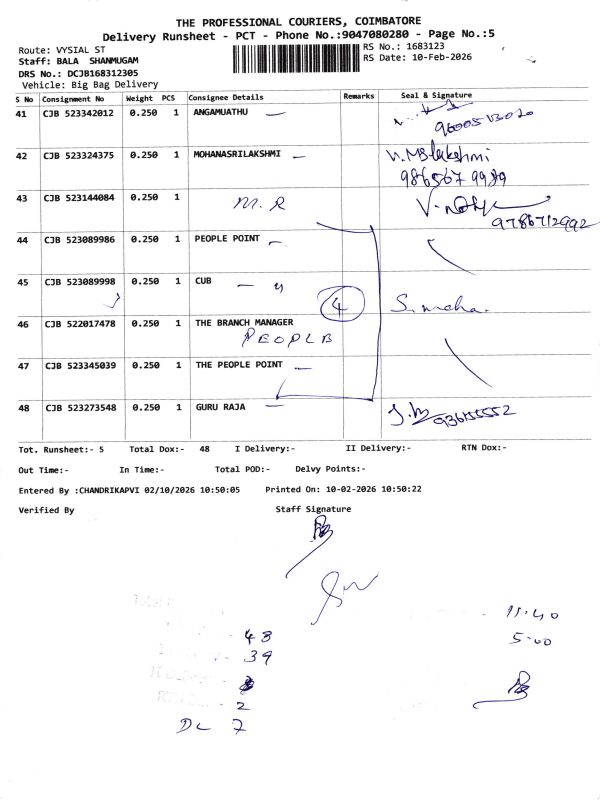 THE PROFESSIONAL COURIERS, COIMBATORE
Delivery Runsheet - PCT - Phone No.:9047080280 - Page No.:5
Route: VYSIAL ST
RS No.: 1683123
Staff: BALA SHANMUGAM
RS Date: 10-Feb-2026
DRS No.: DCJB168312305
Vehicle: Big Bag Delivery
S No Consignment No Weight PCS Consignee Details Remarks Seal & Signature
41 CJB 523342012 0.250 1 ANGAMUATHU
42 CJB 523324375 0.250 1 MOHANASRILAKSHMI
986567 9989
43 CJB 523144084 0.250 1 M.R
9786712992
44 CJB 523089986 0.250 1 PEOPLE POINT
45 CJB 523089998 0.250 1 CUB
4 S. meha.
46 CJB 522017478 0.250 1 THE BRANCH MANAGER
PEOPLB
47 CJB 523345039 0.250 1 THE PEOPLE POINT
48 CJB 523273548 0.250 1 GURU RAJA
Tot. Runsheet:- 5 Total Dox:- 48 I Delivery:- II Delivery:- RTN Dox:-
Out Time:- In Time:- Total POD:- Delvy Points:-
Entered By :CHANDRIKAPVI 02/10/2026 10:50:05 Printed On: 10-02-2026 10:50:22
Verified By Staff Signature
11.40
48 5.00
39
2
DL 7